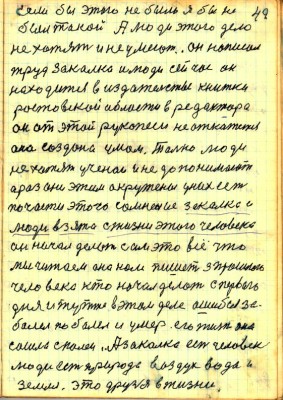 если бы этого не было я бы не 49
был такой А люди этого дело
не хотят и не умеют. он написал
труд закалка и люди сейчас он
находится в издательстве книжки
ростовской области в редактора
он от этой рукописи не откажется
она создана умом. Только люди
не хотят ученой и не допонимают
а раз они этим окружены у них ест
по части этого сомнение закалка и
люди взята с жизни этого человека
он начал делат сам это всё что
мы читаем она нам пишет з прошлого
человека кто начал делат с первого
дня и тут же в этом деле ошибся за-
болел поболел и умер его жит она
сошла с колеи. А закалка ест человек
люди ест природа воздух вода и
земля. Это друзя в жизни.